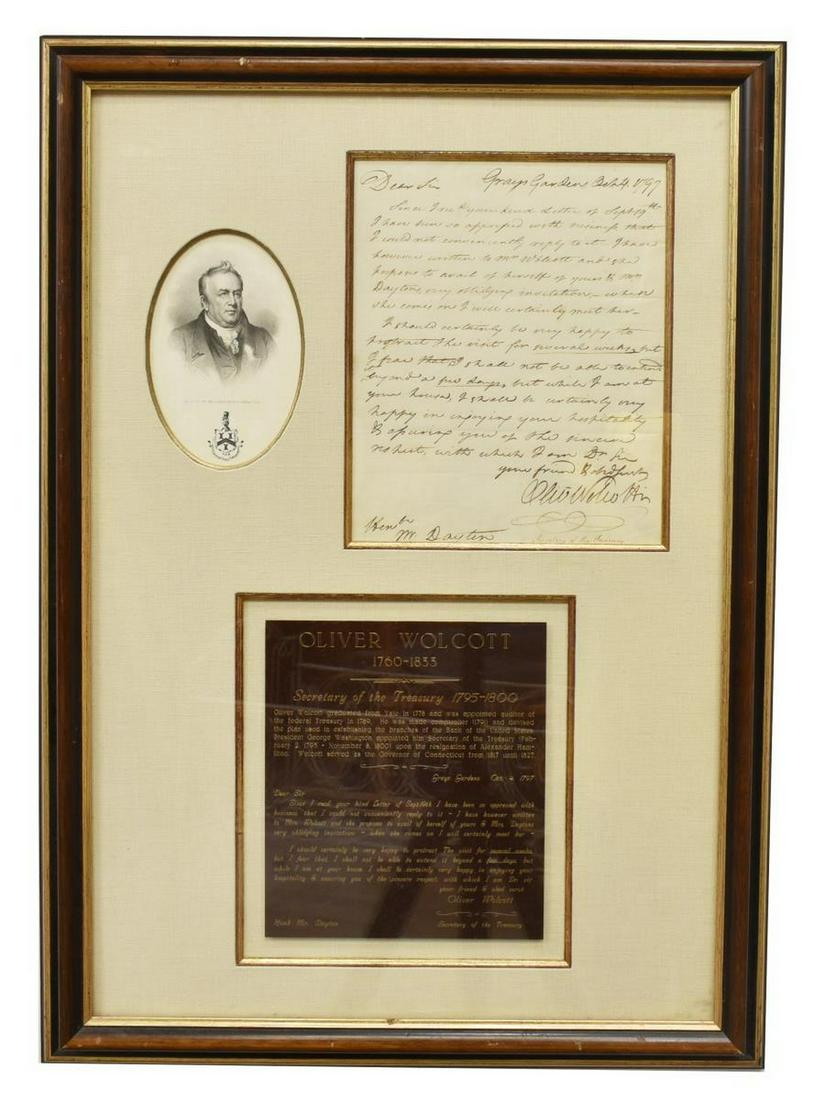 Dear Sir Grays Gardens Octr 4. 1797
Since I recd your kind Letter of Sept. 19th
I have been so oppressed with business that
I could not conveniently reply to it. I have
however written to Mrs Wolcott and she
proposes to avail of herself of yours & Mrs
Daytons very obliging invitation – when
she comes on I will certainly meet her –
I should certainly be very happy to
protract the visit for several weeks, but
I fear that I shall not be able to extend
beyond a few days, but while I am at
your house, I shall be certainly very
happy in enjoying your hospitality
& assuring you of the sincere
respect, with which I am Dr Sir
your friend & obd servt
Oliv Wolcott
Honble
Mr Dayton
Secretary of the Treasury
OLIVER WOLCOTT
1760-1833
Secretary of the Treasury 1795-1800
Oliver Wolcott graduated from Yale in 1778 and was appointed auditor of
the federal Treasury in 1789. He was made comptroller (1791) and devised
the plan used in establishing the branches of the Bank of the United States.
President George Washington appointed him Secretary of the Treasury (Feb-
ruary 2, 1795 - November 8, 1800) upon the resignation of Alexander Ham-
ilton. Wolcott served as the Governor of Connecticut from 1817 until 1827.
Grays Gardens Oct. 4, 1797
Dear Sir
Since I read your kind Letter of Sept. I have been so oppressed with
business that I could not conveniently reply to it - I have however written
to Mrs. Wolcott and she proposes to avail of herself of yours & Mrs. Daytons
very obliging invitation - when she comes on I will certainly meet her -
I should certainly be very happy to protract The visit for several weeks,
but I fear that I shall not be able to extend it beyond a few days, but
while I am at your house I shall be certainly very happy in enjoying your
hospitality & assuring you of the sincere respect, with which I am Dr. sir
your friend & obed servt
Oliver Wolcott
Honb Mr. Dayton Secretary of the Treasury